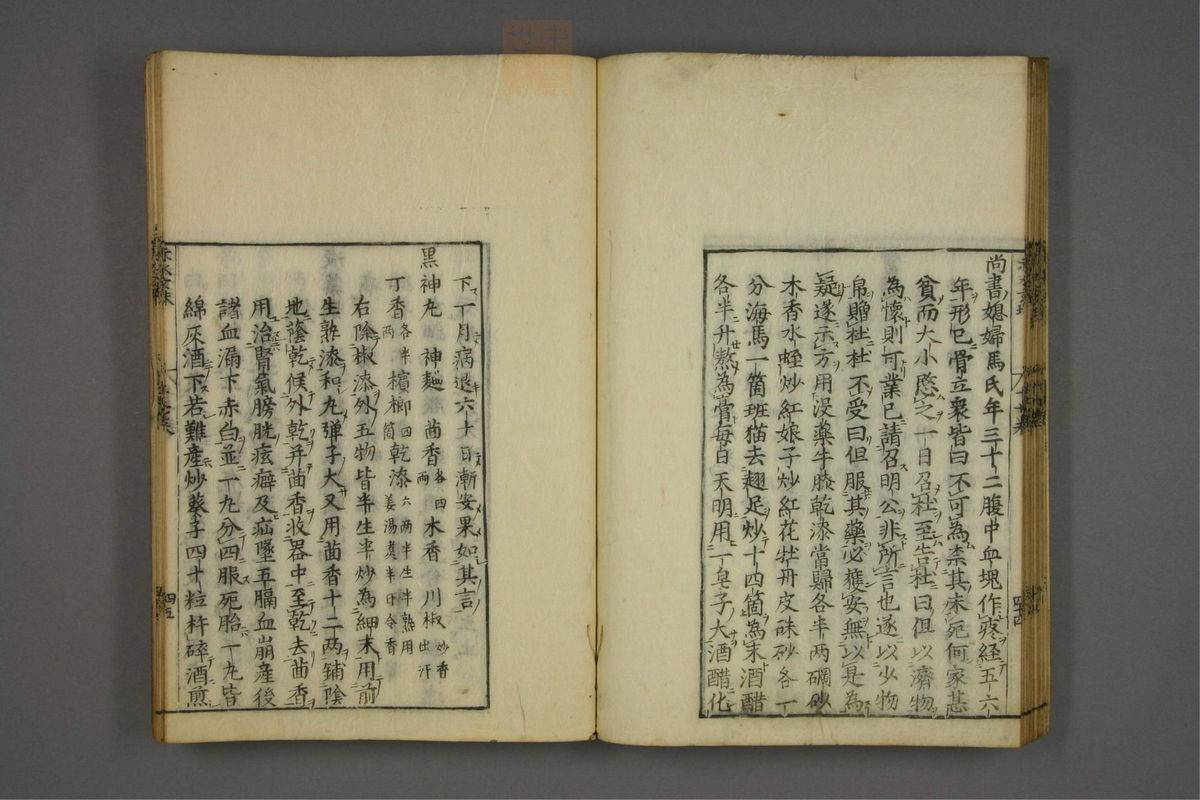 尚書媳婦馬氏年三十二腹中血塊作疼経五六
年形已骨立衆皆曰不可為柰其未死何家甚
貧而大小愍之一日召杜至告杜曰但以濟物
為懐則可業已請召明公非所言也遂以少物
帛贈杜杜不受曰但服其藥必獲安無以是為
疑遂示方用没藥牛膝乾漆當歸各半两硇砂
木香水蛭炒紅娘子炒紅花牡丹皮硃砂各一
分海馬一箇班猫去翅足炒十四箇為末酒醋
各半升熬為膏毎日天明用一皂子大酒醋化
下一月病退六十日漸安果如其言
黒神丸　神麯　茴香各四两　木香　川椒炒香出汗
丁香各半两　檳榔四箇　乾漆六两半生半熟用姜湯煮半日令香
右除椒漆外五物皆半生半炒為細末用前
生熟漆和丸弾子大又用茴香十二两鋪陰
地蔭乾候外乾并茴香收器中至乾去茴香
用治腎氣膀胱痃癖及疝墜五膈血崩産後
諸血漏下赤白並一丸分四服死胎一丸皆
綿灰酒下若難産炒葵子四十粒杵碎酒煎
四四
四五